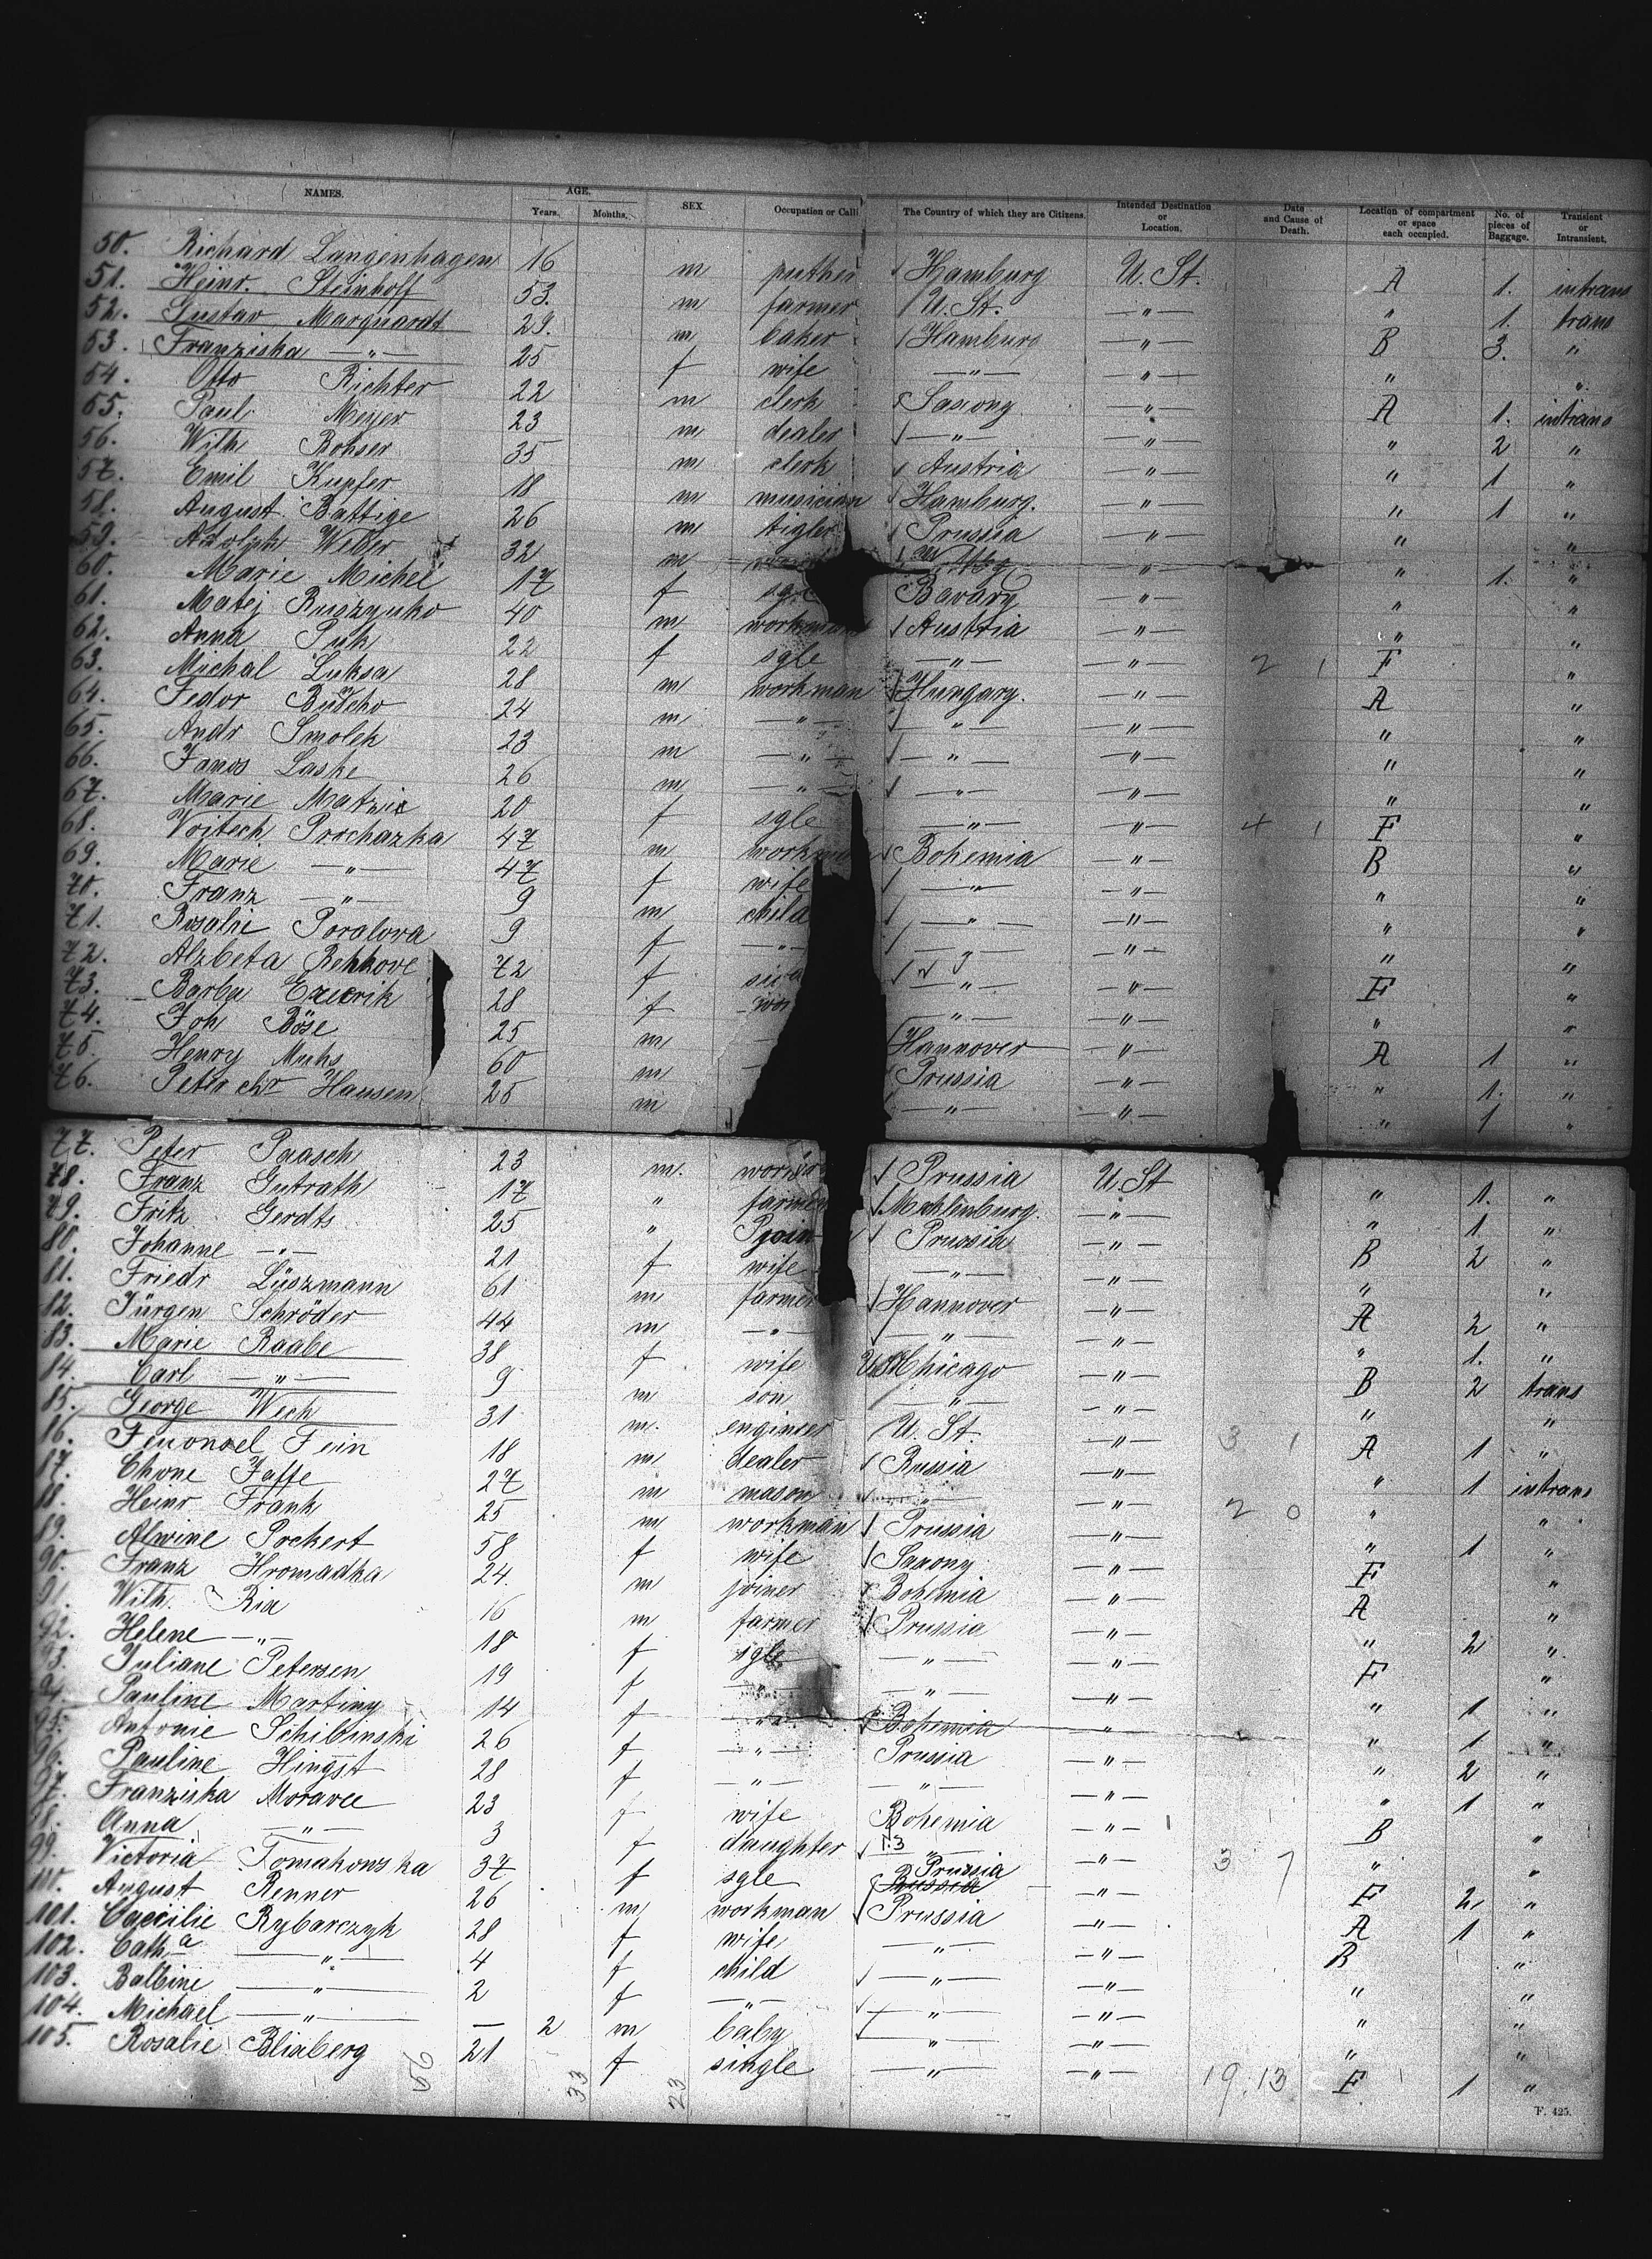 NAMES. AGE. Years. Months. SEX. Occupation or Calli The Country of which they are Citizens. Intended Destination or Location. Date and Cause of Death. Location of compartment or space each occupied. No. of pieces of Baggage. Transient or Intransient.
50. Richard Langenhagen 16 m Hamburg U. St. A 1. intrans
51. Heinr. Steinhoff 53. m farmer U. St. —"— " 1. trans
52. Gustav Marquardt 29. m baker Hamburg —"— B 3. "
53. Franziska —"— 25 f wife —"— —"— " "
54. Otto Richter 22 m clerk Saxony —"— A 1. intrans
55. Paul Meyer 23 m dealer —"— —"— " 2 "
56. Wilh Rohser 35 m clerk Austria —"— " 1 "
57. Emil Kupfer 18 m musician Hamburg. —"— " 1 "
58. August Battige 26 m tigler Prussia —"— " "
59. Adolph Weber 32 m —"— " 1. "
60. Marie Michel 17 f Bavary —"— " "
61. Matej Ruszynko 40 m workman Austria —"— " "
62. Anna Puk 22 f sgle —"— —"— 2 1 F "
63. Michal Luksa 28 m workman Hungary. —"— A "
64. Fedor 24 m —"— —"— —"— " "
65. Andr Smolek 23 m —"— —"— —"— " "
66. Janos Laske 26 m —"— —"— —"— " "
67. Marie 20 f sgle —"— —"— 4 1 F "
68. Voitech Prochazka 47 m workman Bohemia —"— B "
69. Marie —"— 47 f wife —"— —"— " "
70. Franz —"— 9 m child —"— —"— " "
71. Rosalie Poralova 9 f —"— —"— " "
72. Alzbeta 72 f —"— —"— F "
73. Barba 28 f wor —"— —"— " "
74. Joh Böse 25 m Hannover —"— A 1 "
75. Henry Muhs 60 m Prussia —"— " 1. "
76. Peter Chr Hansen 25 m —"— —"— " 1 "
77. Peter Paasch 23 m. Prussia U. St " 1. "
78. Franz Gutrath 17 " farmer Mecklenburg. —"— " 1 "
79. Fritz Gerdts 25 " join Prussia —"— B 2 "
80. Johanne —"— 21 f wife —"— —"— " "
81. Friedr Lüszmann 61 m farmer Hannover —"— A 2 "
82. Jürgen Schröder 44 m —"— —"— —"— " 1. "
83. Marie Raabe 38 f wife Chicago —"— B 2 trans
84. Carl —"— 9 m son —"— —"— " "
85. George Wech 31 m. engineer U. St. —"— 3 1 A 1 "
86. Fein 18 m dealer Russia —"— " 1 intrans
87. Chone Jaffe 27 m mason —"— —"— 2 0 " "
88. Heinr Frank 25 m workman Prussia —"— " 1 "
89. Alwine Prckert 58 f wife Saxony —"— F "
90. Franz Hromadka 24. m joiner Bohemia —"— A "
91. Wilh. Ria 16 m farmer Prussia —"— " 2 "
92. Helene —"— 18 f sgle —"— —"— F "
93. Juliane Petersen 19 f —"— —"— —"— " 1 "
94. Pauline Martiny 14 f —"— Bohemia —"— " 1 "
95. Antonie Schibinski 26 f —"— Prussia —"— " 2 "
96. Pauline Hingst 28 f —"— —"— —"— " 1 "
97. Franziska Moravec 23 f wife Bohemia —"— B "
98. Anna —"— 3 f daughter —"— —"— 3 7 " "
99. Victoria Tomakowska 37 f sgle Prussia —"— F 2 "
100. August Renner 26 m workman Prussia —"— A 1 "
101. Caecilie Rybarczyk 28 f wife —"— —"— B "
102. Cath a —"— 4 f child —"— —"— " "
103. Balbine —"— 2 f —"— —"— —"— " "
104. Michael —"— — 2 m baby —"— —"— " "
105. Rosalie Blinberg 21 f single —"— —"— 19.13 F 1 "
56 33 23
F. 425.